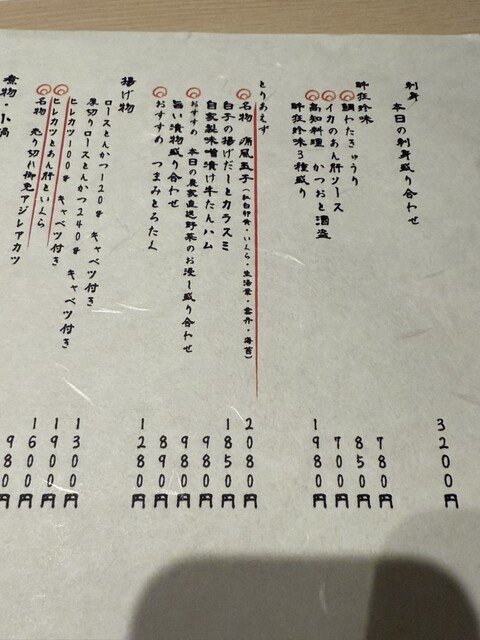 刺身
本日の刺身盛り合わせ 3200円
酔狂珍味
鯛わたきゅうり 780円
イカのあん肝ソース 850円
高知料理 かつおと酒盗 700円
酔狂珍味3種盛り 1980円
とりあえず
名物 痛風玉子(紅白卵黄・いくら・生海苔・雲丹・海苔) 2080円
白子の揚げだしとカラスミ 1850円
自家製味噌漬け牛たんハム 980円
おすすめ 本日の農家直送野菜のお浸し盛り合わせ 980円
旨い漬物盛り合わせ 890円
おすすめ つまみとろたく 1280円
揚げ物
ロースとんかつ120g キャベツ付き 1300円
厚切りロースとんかつ240g キャベツ付き 1900円
ヒレカツ100g キャベツ付き 1600円
ヒレカツとあん肝といくら 980円
名物 売り切れ御免アジレアカツ
煮物・小鍋